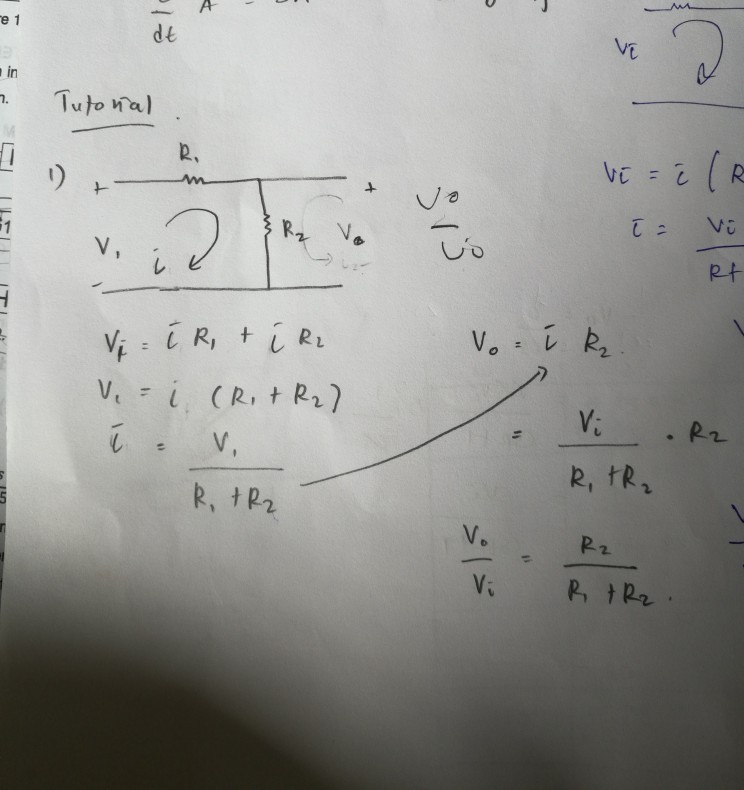 dt
Tutorial.
1)
R₁
+
+
R₂
V₁
i
V₀
Vo
Vi = i R₁ + i R₂
V₁ = i (R₁ + R₂)
i = V₁
R₁ + R₂
V₀ = i R₂.
= Vi
R₁ + R₂ · R₂
V₀
Vi = R₂
R₁ + R₂.
Vi
Vi = i (R
i = Vi
R+